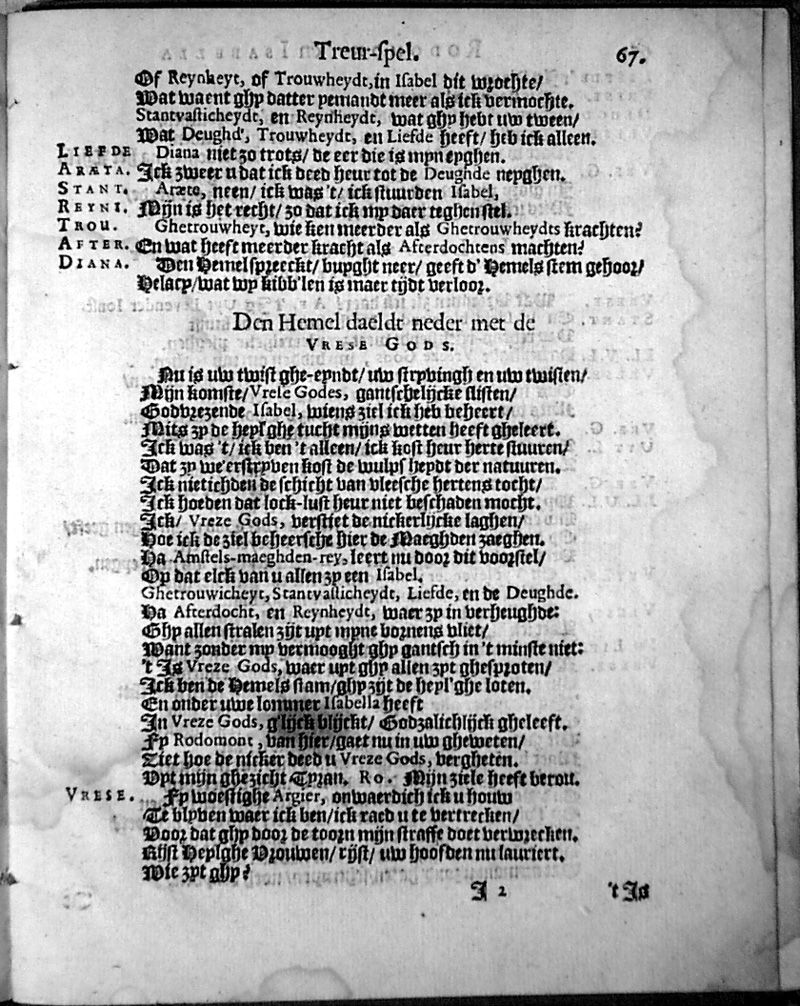 Treur-spel. 67.
Of Reynheyt, of Trouwheydt, in Isabel dit wrochte/
Wat waent ghy datter yemandt meer als ick vermochte.
Stantvasticheydt, en Reynheydt, wat ghy hebt uw tween/
Wat Deughd', Trouwheydt, en Liefde heeft/ heb ick alleen.
LIEFDE Diana niet zo trots/ de eer die is myn eyghen.
ARÆTA. Ick zweer u dat ick deed heur tot de Deughde neyghen.
STANT. Aræte, neen/ ick was 't/ ick stuurden Isabel,
REYNI. Mijn is het recht/ zo dat ick my daer teghen stel.
TROU. Ghetrouwheyt, wie ken meerder als Ghetrouwheydts krachten?
AFTER. En wat heeft meerder kracht als Afterdochtens machten?
DIANA. Den Hemel spreeckt/ buyght neer/ geeft d' Hemels stem gehoor/
Helacy/ wat wy kibb'len is maer tijdt verloor.
Den Hemel daeldt neder met de
VRESE GODS.
Nu is uw twist ghe-eyndt/ uw stryvingh en uw twisten/
Mijn komste/ Vrese Godes, gantschelijcke slisten/
Godvrezende Isabel, wiens ziel ick heb beheert/
Mits zy de heyl'ghe tucht mijns wetten heeft gheleert.
Ick was 't/ ick ben 't alleen/ ick kost heur herte stuuren/
Dat zy we'erstryven kost de wulpsheydt der natuuren.
Ick nietichden de schicht van vleesche hertens tocht/
Ick hoeden dat lock-lust heur niet beschaden mocht.
Ick/ Vreze Gods, verstiet de nickerlijcke laghen/
Hoe ick de ziel beheersche hier de Maeghden zaeghen.
Ha Amstels-maeghden-rey, leert nu door dit voorstel/
Op dat elck van u allen zy een Isabel.
Ghetrouwicheyt, Stantvasticheydt, Liefde, en de Deughde.
Ha Afterdocht, en Reynheydt, waer zy in verheughde:
Ghy allen stralen zijt uyt myne bornens vliet/
Want zonder my vermooght ghy gantsch in 't minste niet:
't Is Vreze Gods, waer uyt ghy allen zyt ghesproten/
Ick ben de Hemels stam/ ghy zijt de heyl'ghe loten.
En onder uwe lommer Isabella heeft
In Vreze Gods, g'lijck blijckt/ Godzalichlijck gheleeft.
Fy Rodomont, van hier/ gaet nu in uw gheweten/
Ziet hoe de nicker deed u Vreze Gods, vergheten.
Uyt mijn ghezicht Tyran. Ro. Mijn ziele heeft berou.
VRESE. Fy woestighe Argier, onwaerdich ick u houw
Te blyven waer ick ben/ ick raed u te vertrecken/
Voor dat ghy door de toorn mijn straffe doet verwrecken.
Rijst Heylghe Vrouwen/ rijst/ uw hoofden nu lauriert.
Wie zyt ghy?
I 2 't Is